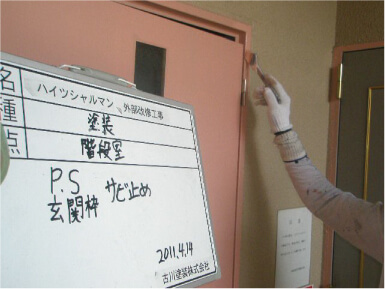 名 ハイツシャルマン 外部改修工事
種 塗装
点 階段室
P.S
玄関枠 サビ止め
2011.4.14
古川塗装株式会社